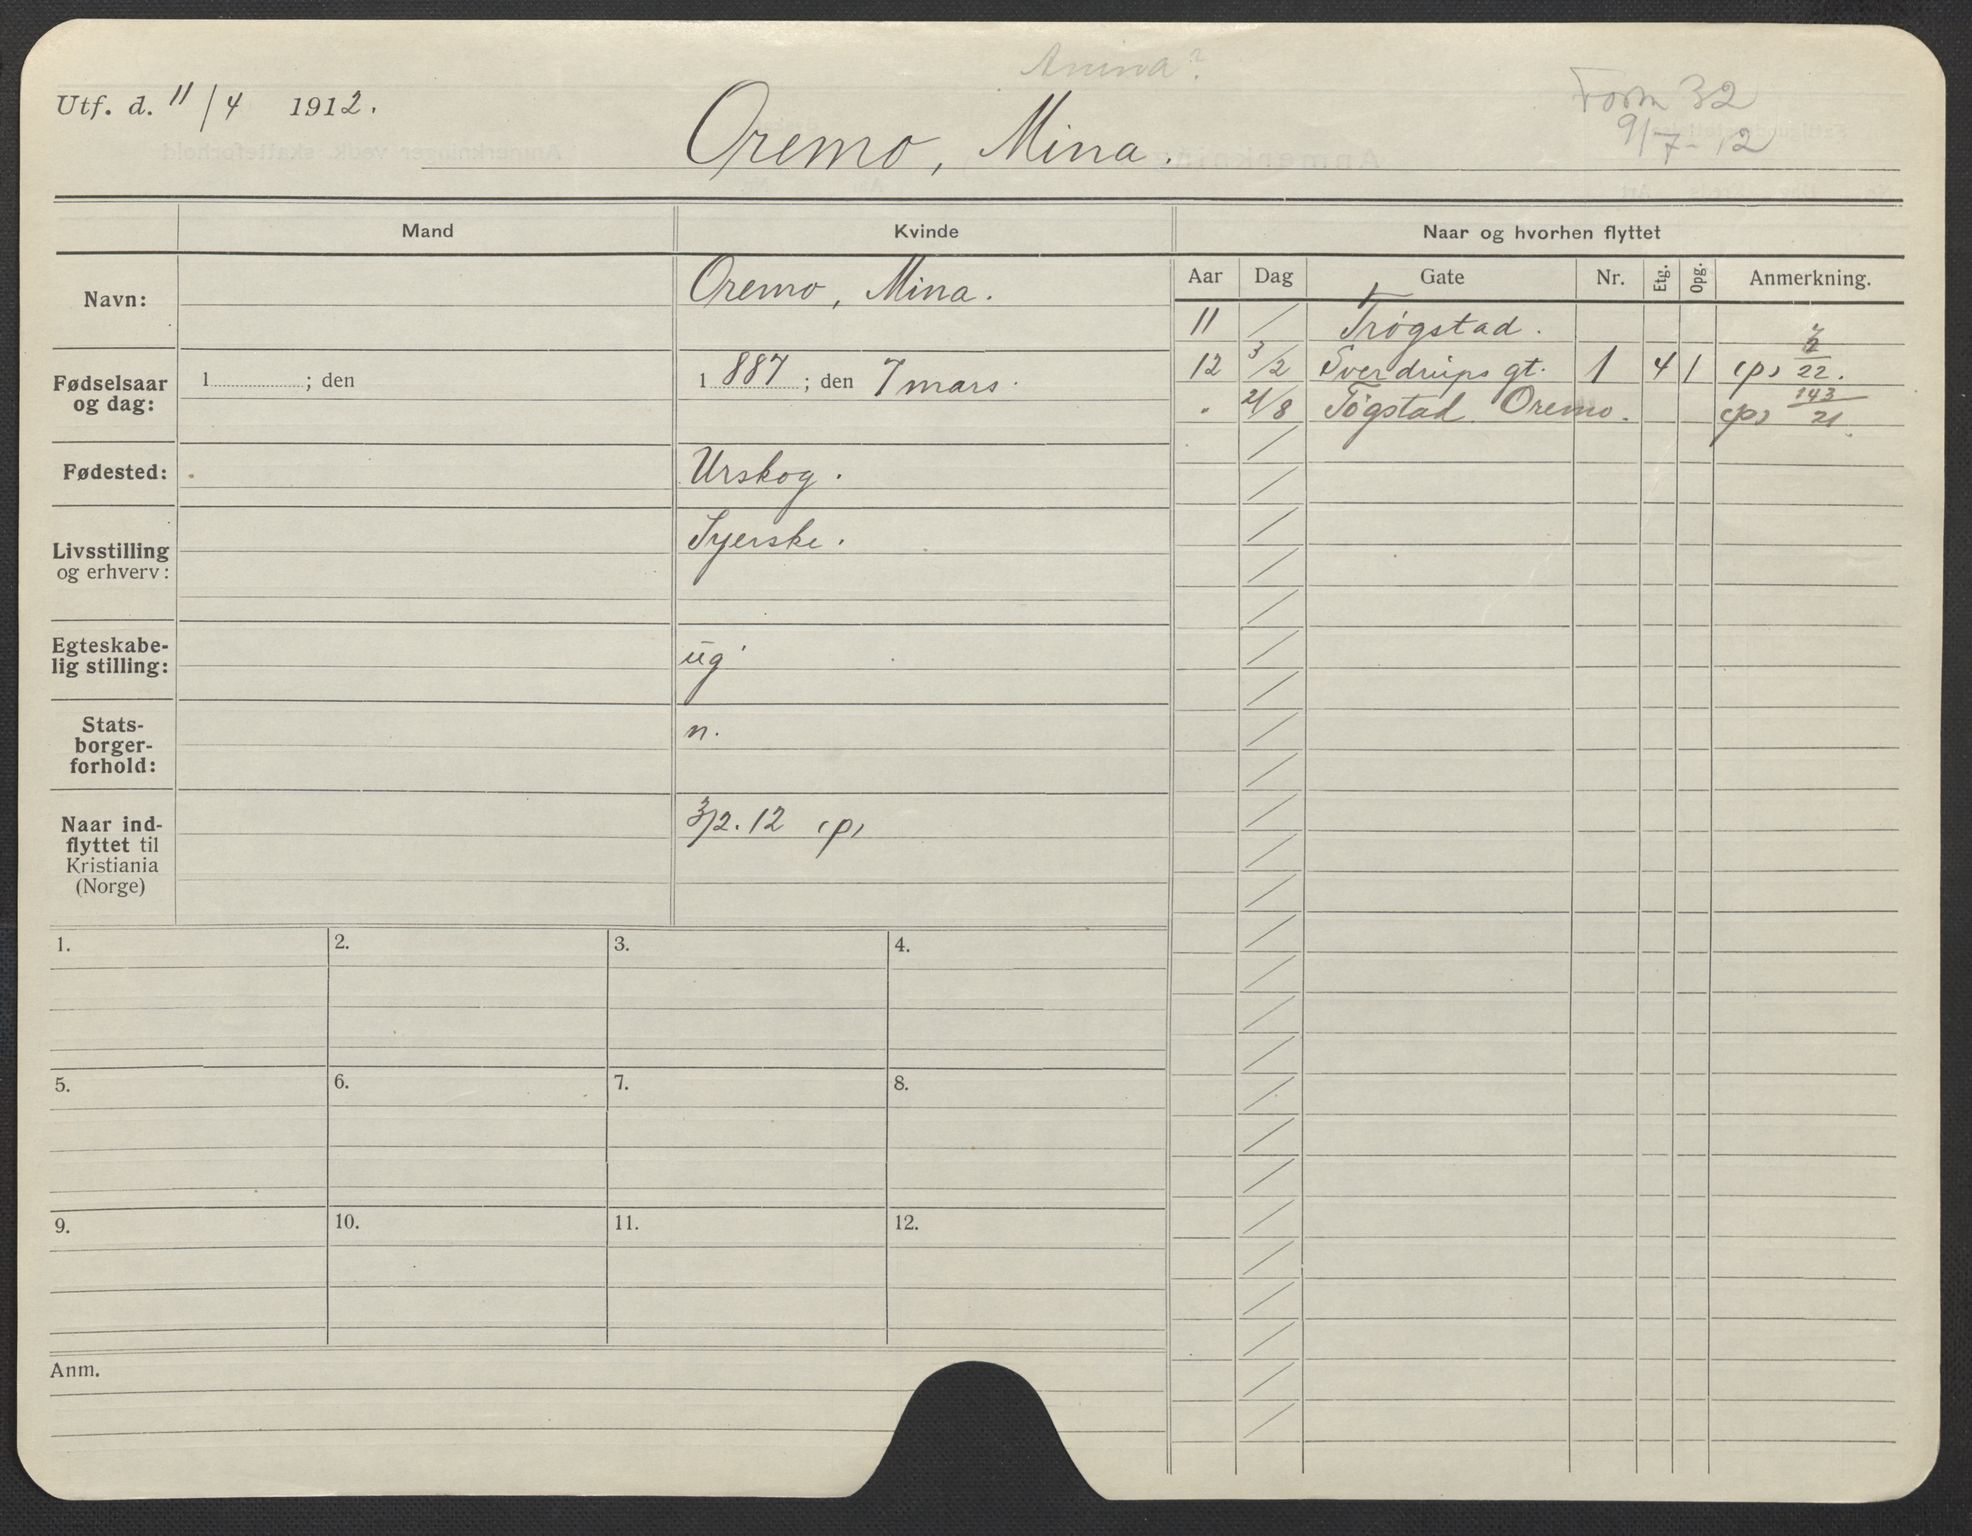 Anina?
Utf. d. 11/4 1912.
Form 32
9/7-12
Oremo, Mina.
Mand
Kvinde
Naar og hvorhen flyttet
Aar Dag Gate Nr. Etg. Opg. Anmerkning.
Navn:
Oremo, Mina.
Fødselsaar
og dag:
1 ; den
1887 ; den 7 mars.
Fødested:
Urskog.
Livsstilling
og erhverv:
Syerske.
Egteskabe-
lig stilling:
ug
Stats-
borger-
forhold:
n.
Naar ind-
flyttet til
Kristiania
(Norge)
3/2. 12 (p)
11 / Trøgstad.
12 3/2 Sverdrups gt. 1 4 1 (p) 22.
. 21/8 Tøgstad Oremo. (p) 143/21
1. 2. 3. 4.
5. 6. 7. 8.
9. 10. 11. 12.
Anm.